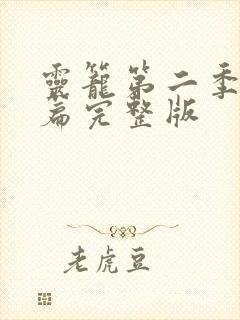 靈籠第二季
篇完整版
老虎豆